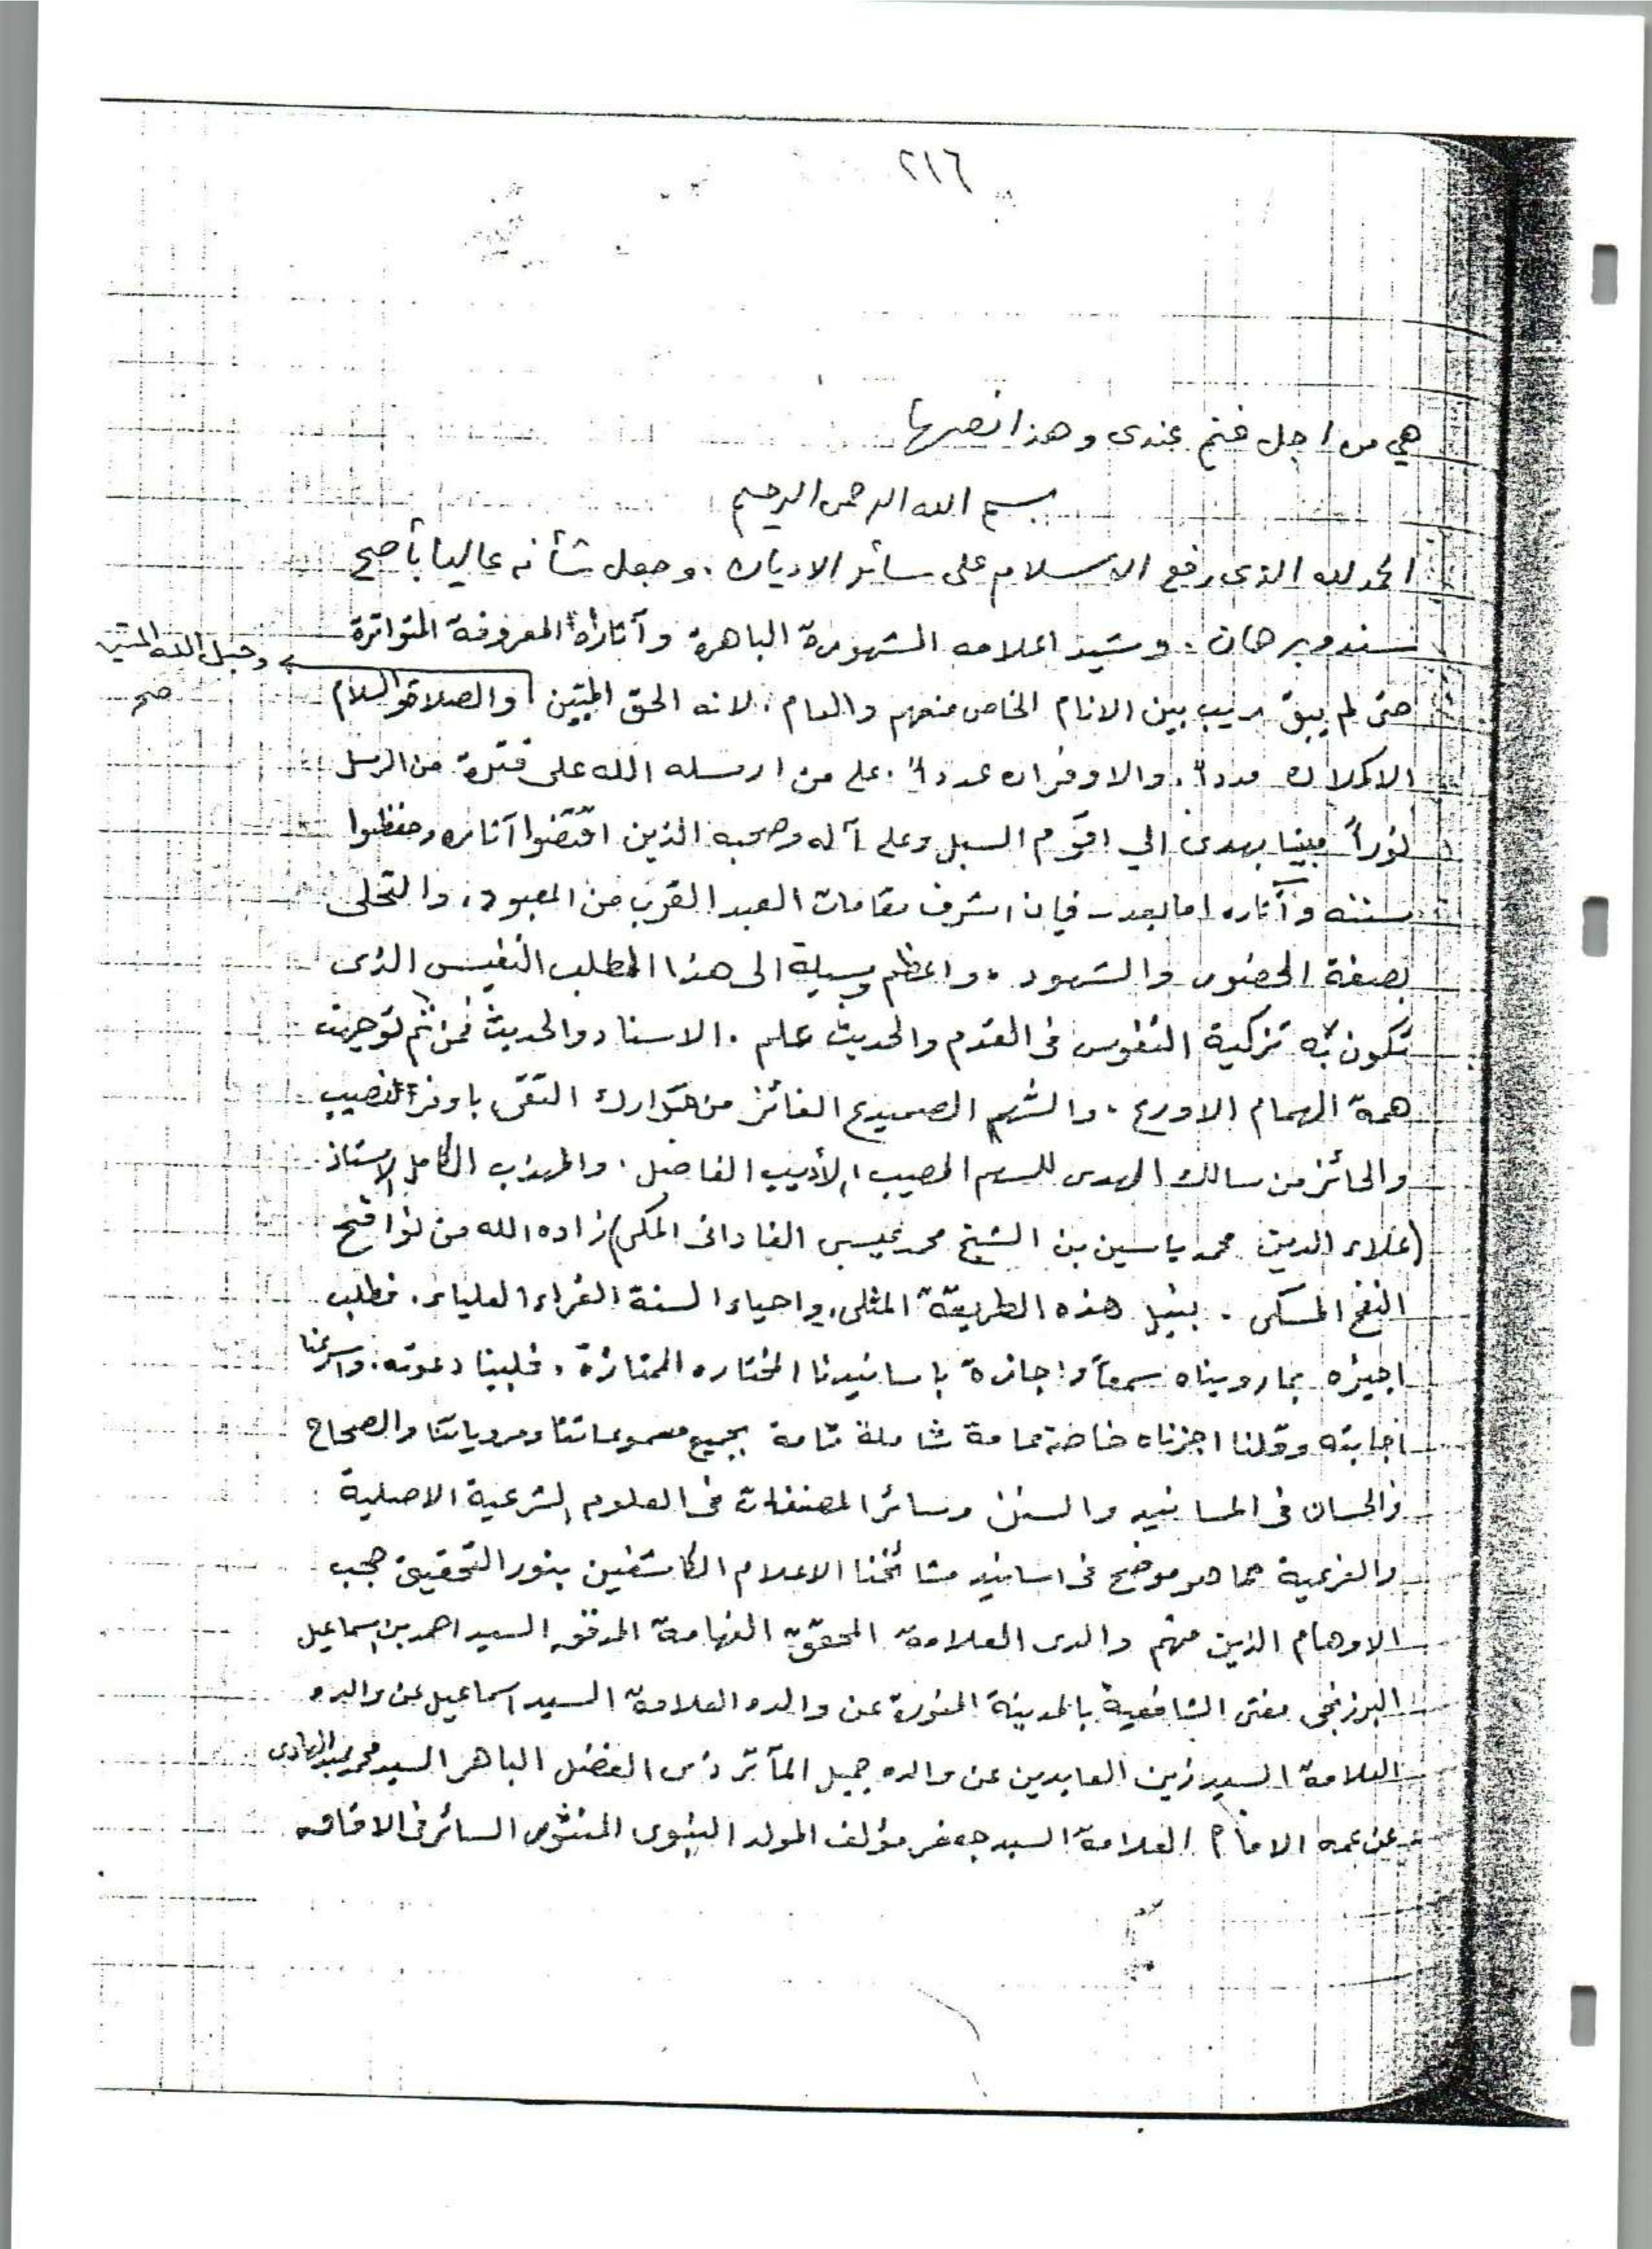 ٢١٦
هي من اجل غنم عندى وهذا نصها
بسم الله الرحمن الرحيم
الحمد لله الذى رفع الاسلام على سائر الاديان . وجعل شأنه عاليا بأصح
سند وبرهان . وشيد اعلامه المشهورة الباهرة وآثاره المعروفة المتواترة
حتى لم يبق ريب بين الانام الخاص منهم والعام . لانه الحق المبين والصلاة والسلام
وحبل الله المتين
صح
الاكملان مددا . والاوفران عددا . على من ارسله الله على فترة من الرسل
نوراً مبينا يهدى الي اقوم السبل وعلى آله وصحبه الذين اقتفوا آثاره وحفظوا
سننه وآثاره اما بعد – فان اشرف مقامات العبد القرب من المعبود . والتحلى
بصفة الحضور والشهود . واعظم وسيلة الى هذا المطلب النفيس الذى
تكون به تزكية النفوس فى القدم والحديث علم . الاسناد والحديث فمن ثم توجهت
همة الهمام الاورع . والشهم الصميدع الفائز من مدارك التقى باوفر نصيب
والحائز من سالك الهدى للسهم المصيب الأديب الفاضل . والمهذب الكامل الاستاذ
(علاء الدين محمد ياسين بن الشيخ محمد عيسى الفادانى المكى) زاده الله من نوافح
النفح المسكى . بنيل هذه الطريقة المثلى، واحياء السنة الغراء العلياء . فطلب
اجيزه بما رويناه سمعاً واجازة باسانيدنا المختاره الممتازة . فلبينا دعوته . واسرعنا
اجابته وقلنا اجزناه خاصة عامة شاملة تامة بجميع مسموعاتنا ومروياتنا والصحاح
والحسان فى المسانيد والسنن وسائر المصنفات فى العلوم الشرعية الاصلية
والفرعية مما هو موضح فى اسانيد مشائخنا الاعلام الكاشفين بنور التحقيق حجب
الاوهام الذين منهم والدى العلامة المحقق الفهامة المدقق السيد احمد بن اسماعيل
البرزنجى مفتى الشافعية بالمدينة المنورة عن والده العلامة السيد اسماعيل عن والده
العلامة السيد زين العابدين عن والده جميل المآثر ذى الفضل الباهر السيد محمد عبد الهادى
عن عمه الامام العلامة السيد جعفر مؤلف المولد النبوى المنثور السائر فى الافاق